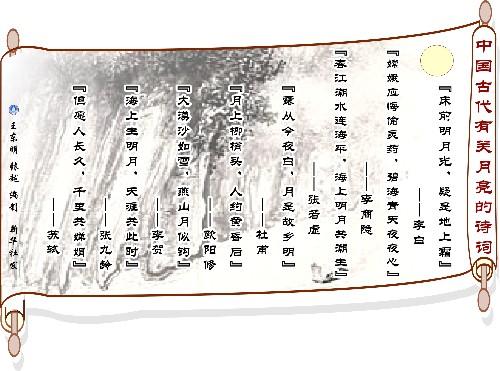 中国古代有关月亮的诗词
『床前明月光，疑是地上霜』
——李白
『嫦娥应悔偷灵药，碧海青天夜夜心』
——李商隐
『春江潮水连海平，海上明月共潮生』
——张若虚
『露从今夜白，月是故乡明』
——杜甫
『月上柳梢头，人约黄昏后』
——欧阳修
『大漠沙如雪，燕山月似钩』
——李贺
『海上生明月，天涯共此时』
——张九龄
『但愿人长久，千里共婵娟』
——苏轼
王东明 新华社发